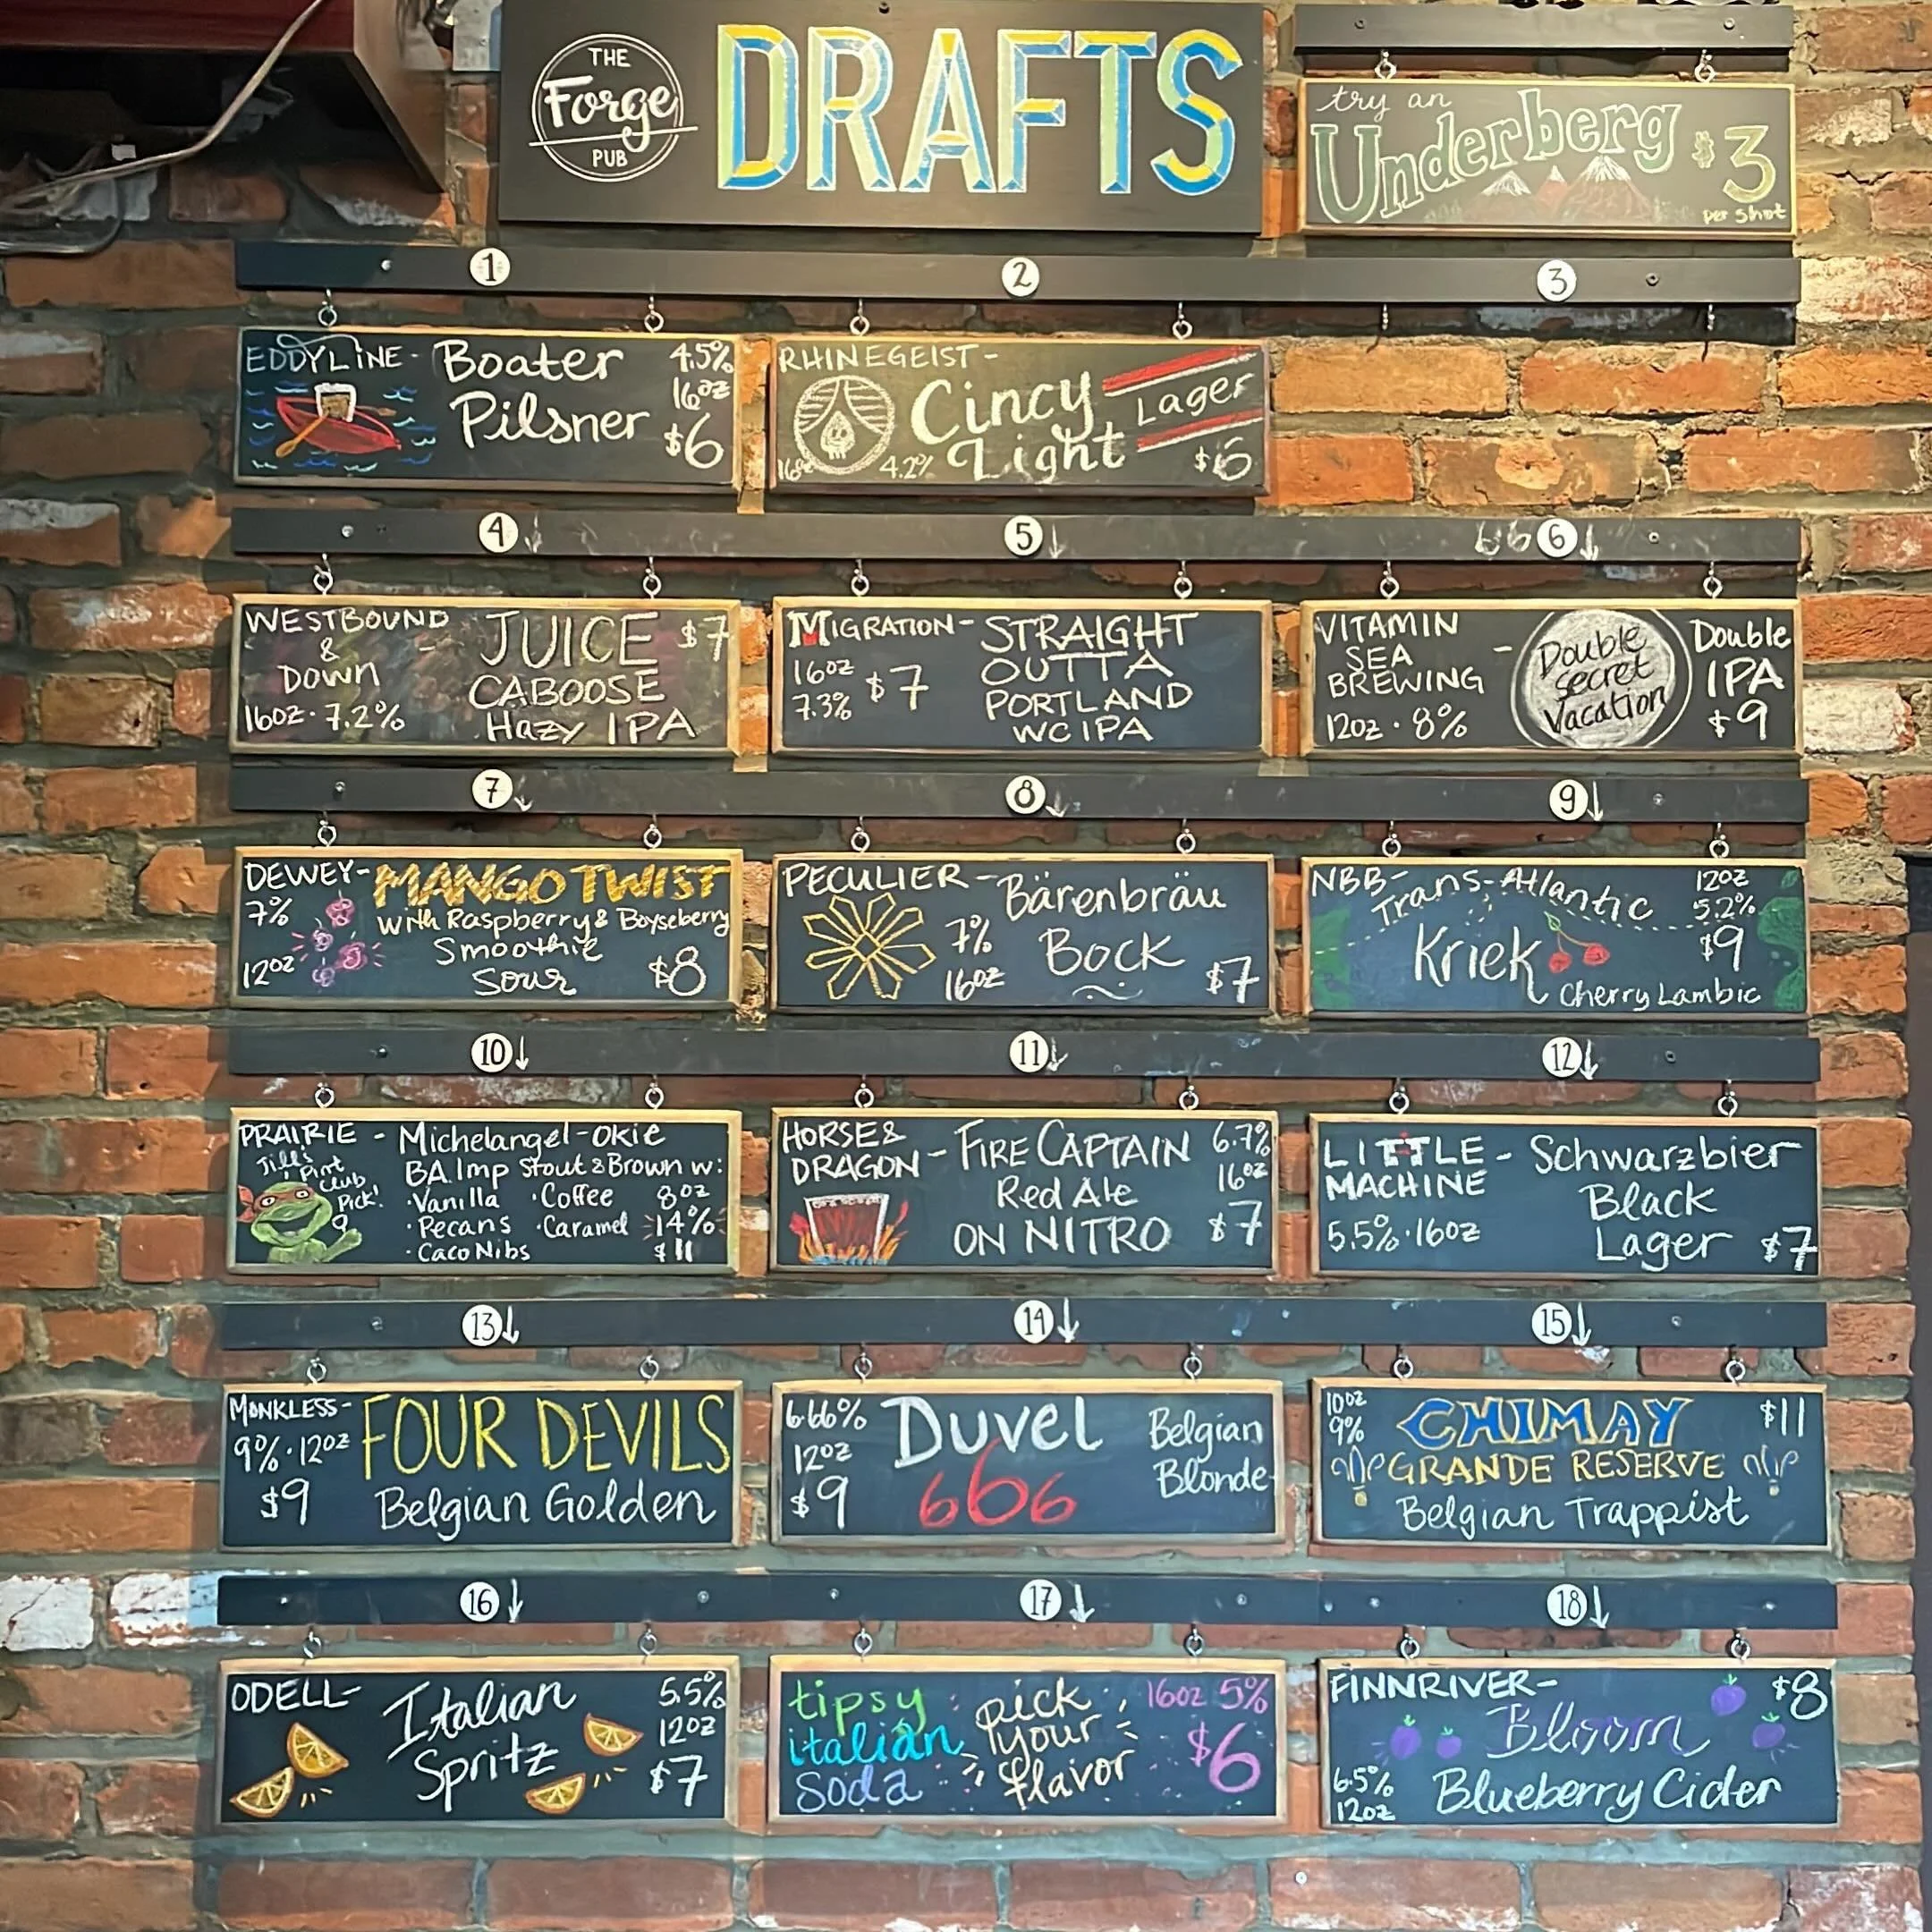 THE
Forge
PUB
DRAFTS
try an
Underberg $3
per shot
1
2
3
EDDYLINE - Boater 4.5%
16oz
Pilsner $6
RHINEGEIST -
Cincy Lager
Light
16oz 4.2% $6
4↓
5↓
666↓
WESTBOUND
&
DOWN -
16oz · 7.2%
JUICE $7
CABOOSE
Hazy IPA
MIGRATION - STRAIGHT
OUTTA
PORTLAND
WC IPA
16oz
7.3% $7
VITAMIN
SEA -
BREWING
12oz · 8%
Double
Secret
Vacation
Double
IPA
$9
7↓
8↓
9↓
DEWEY - MANGO TWIST
7% With Raspberry & Boyseberry
Smoothie
12oz Sour $8
PECULIER - Bärenbräu
7% Bock
16oz $7
NBB - Trans-Atlantic 12oz
5.2%
Kriek $9
Cherry Lambic
10↓
11↓
12↓
PRAIRIE - Michelangel-okie
Jill's
Pint
Club
Pick!
BA Imp Stout & Brown w:
·Vanilla ·Coffee 8oz
·Pecans ·Caramel 14%
·Caco Nibs $11
HORSE & - FIRE CAPTAIN 6.7%
DRAGON Red Ale 16oz
ON NITRO $7
LITTLE - Schwarzbier
MACHINE Black
5.5% · 16oz Lager $7
13↓
14↓
15↓
MONKLESS - FOUR DEVILS
9% · 12oz
$9 Belgian Golden
6.66% Duvel Belgian
12oz Blonde
$9 666
10oz CHIMAY $11
9%
GRANDE RESERVE
Belgian Trappist
16↓
17↓
18↓
ODELL - Italian 5.5%
12oz
Spritz $7
tipsy pick 16oz 5%
italian your $6
soda flavor
FINNRIVER - $8
Bloom
6.5% Blueberry Cider
12oz